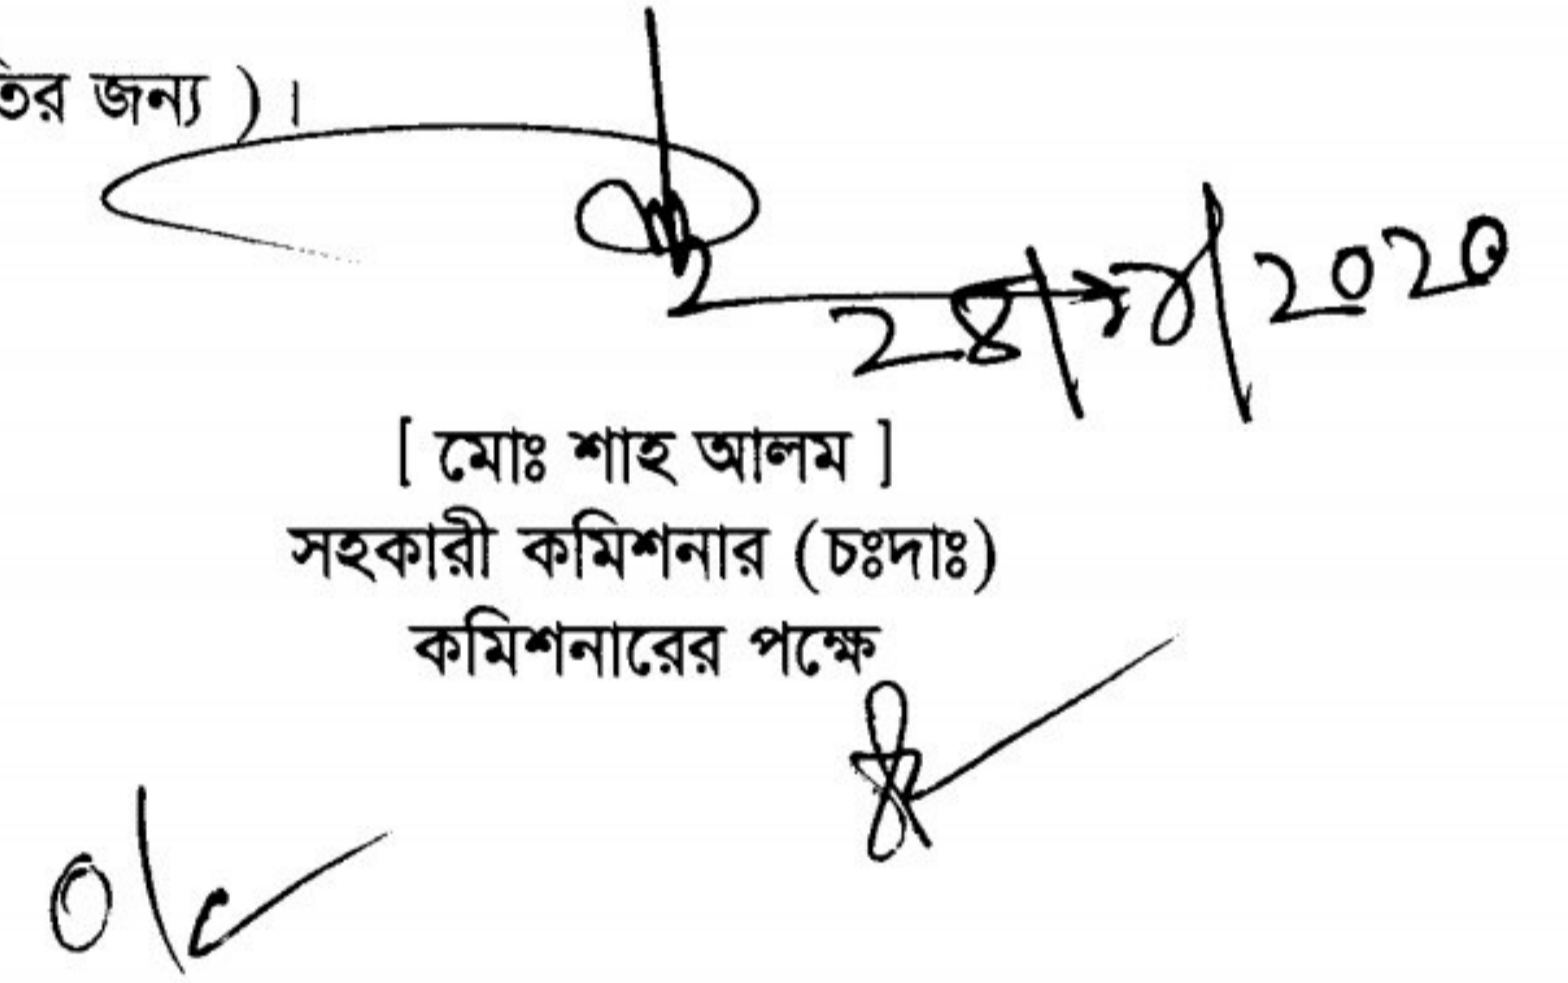 তির জন্য )।
[ মোঃ শাহ আলম ]
সহকারী কমিশনার (চঃদাঃ)
কমিশনারের পক্ষে
o/c